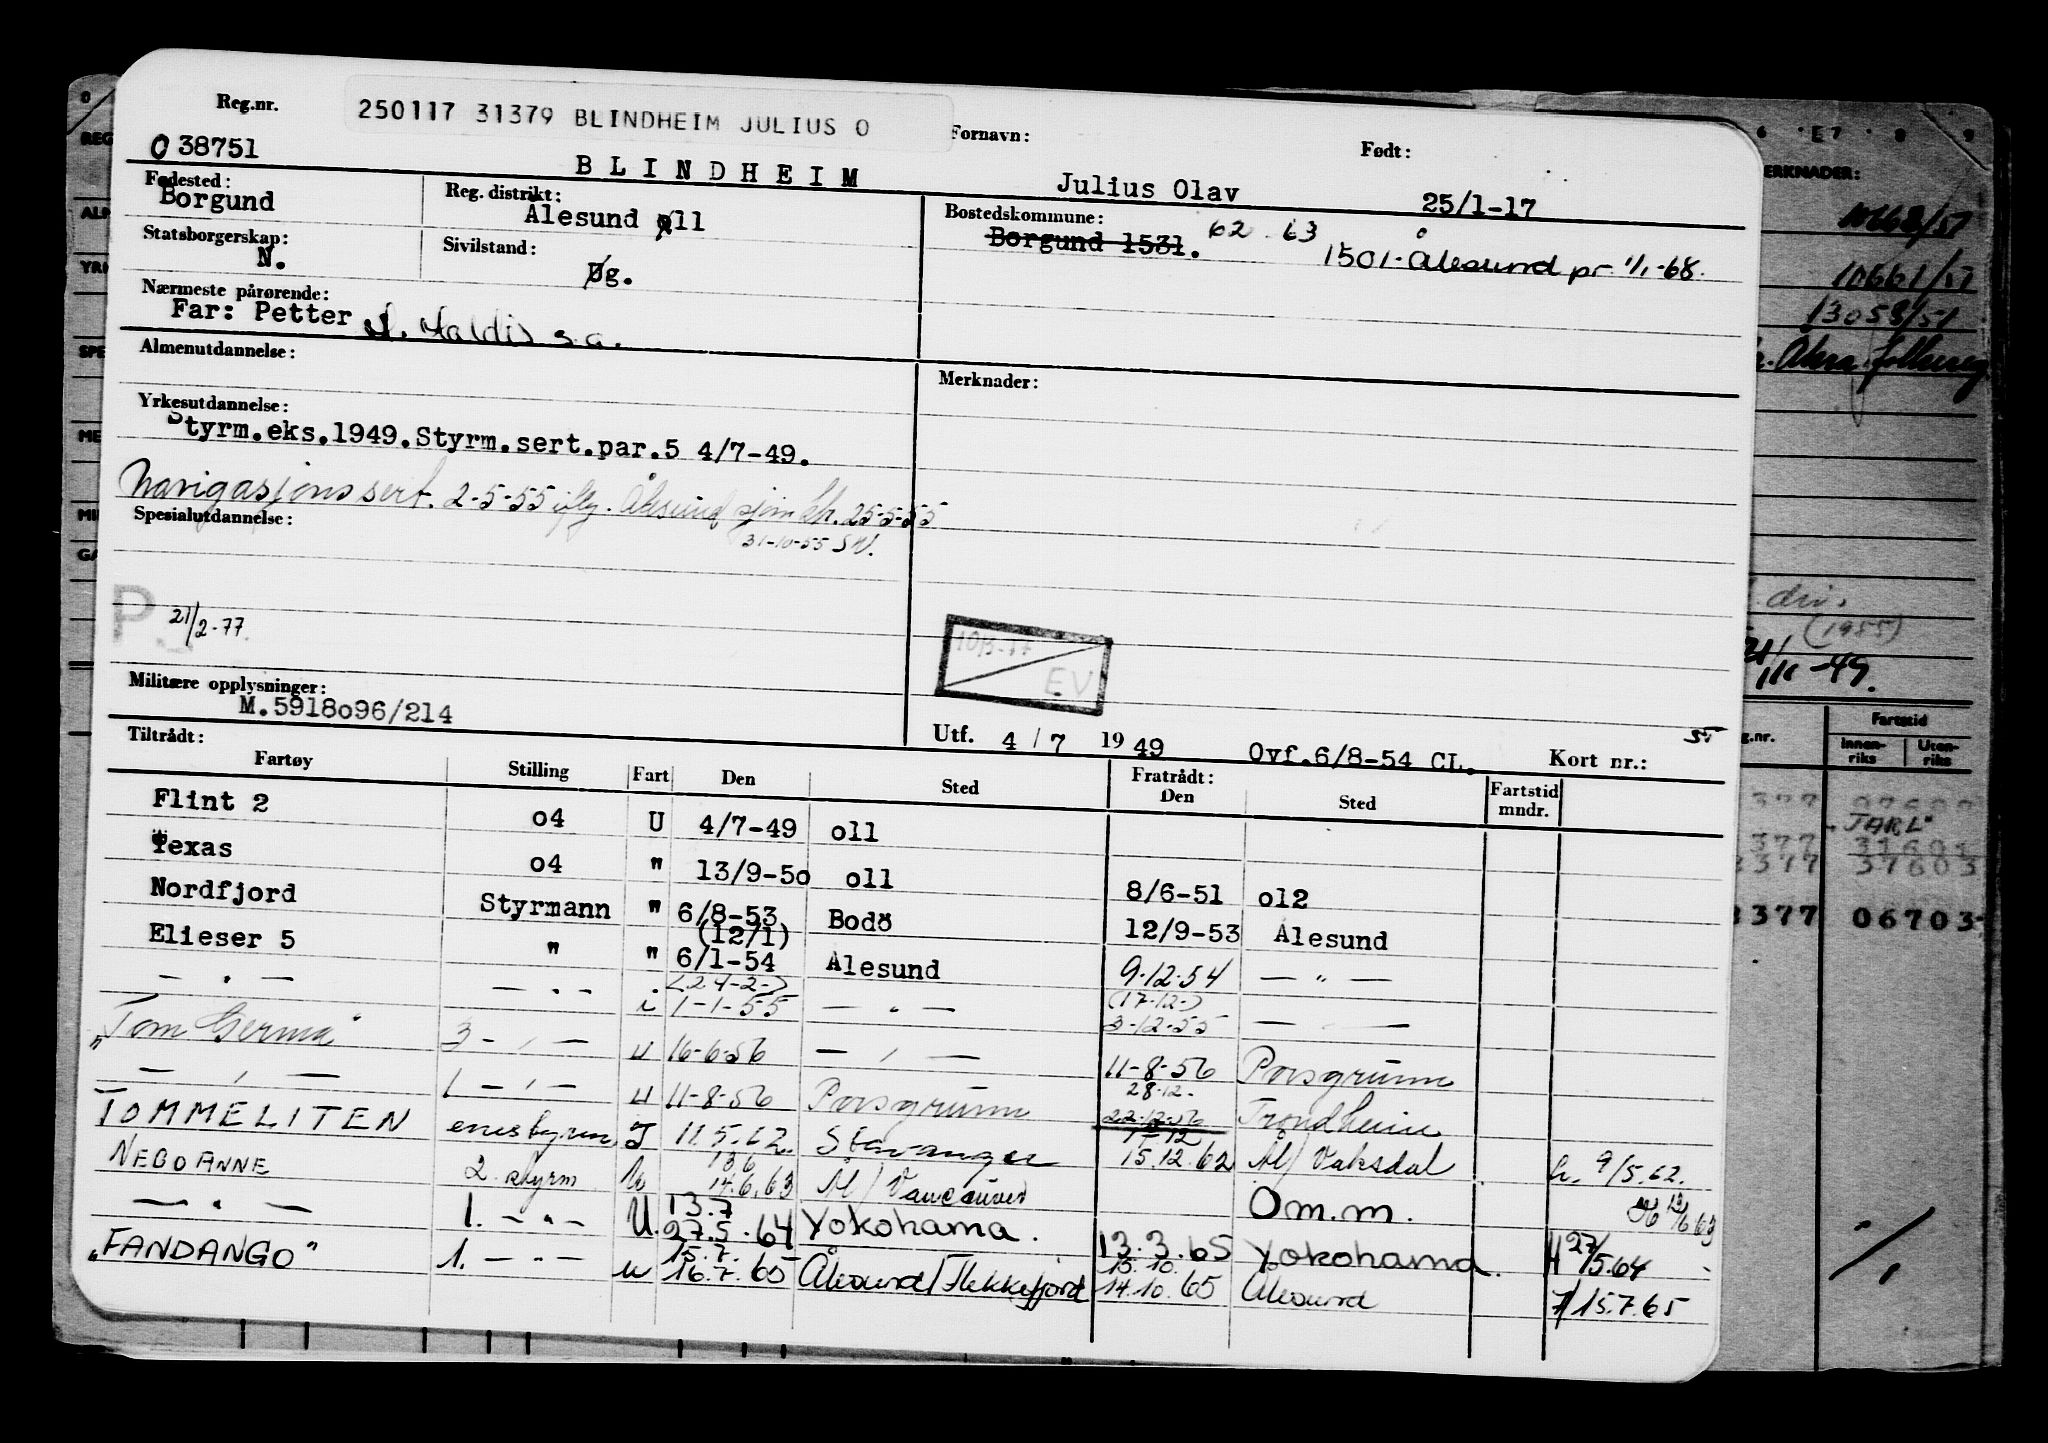 Reg.nr.
250117 31379 BLINDHEIM JULIUS O
O 38751
BLINDHEIM
Fornavn:
Julius Olav
Født:
25/1-17
Fødested:
Borgund
Reg. distrikt:
Ålesund oll
Bostedskommune:
Borgund 1531. 62. 63
1501-Ålesund pr 1/1-68.
Statsborgerskap:
N.
Sivilstand:
Øg.
Nærmeste pårørende:
Far: Petter
s.a.
Almenutdannelse:
Merknader:
Yrkesutdannelse:
Styrm.eks.1949.Styrm.sert.par.5 4/7-49.
Navigasjonssert. 2-5-55 Ålesund 25-5-55
31-10-55
Spesialutdannelse:
P.
21/2-77.
EV
Militære opplysninger:
M.5918o96/214
Utf. 4 / 7 19 49 Ovf.6/8-54 CL. Kort nr.:
Tiltrådt: Fratrådt:
Fartøy Stilling Fart Den Sted Den Sted Fartstid mndr.
Flint 2 o4 U 4/7-49 oll
Texas o4 " 13/9-5o oll 8/6-51 ol2
Nordfjord Styrmann " 6/8-53 Bodö 12/9-53 Ålesund
(12/1)
Elieser 5 " " 6/1-54 Ålesund 9-12-54 — " —
(24-2-) (17-12-)
— " — — " — i 1-1-55 — " — 3-12-55 — " —
3 — " — u 16-6-56 — " — 11-8-56 Porsgrunn
28-12.
— " — 1 — " — u 11-8-56 Porsgrunn 22-12-56 Trondheim
TOMMELITEN 11.5.62. Stavanger 15.12.62 Ål/Vaksdal 9/5.62.
13.6
NEGOANNE 2 styrm 14.6.63 Ål/Vancouver Om.m.
13.7
— " — 1. — " — U. 27.5.64 Yokohama. 13.3.65 Yokohama. 27/5.64
15.7. 15.10.
"FANDANGO" 1. — " — u 16.7.65 Ålesund/Flekkefjord 14.10.65 Ålesund 15.7.65
ERKNADER:
10661/51
13058/51
(1955)
Fartstid
Innen-riks
Uten-riks
JARL
3377
06703